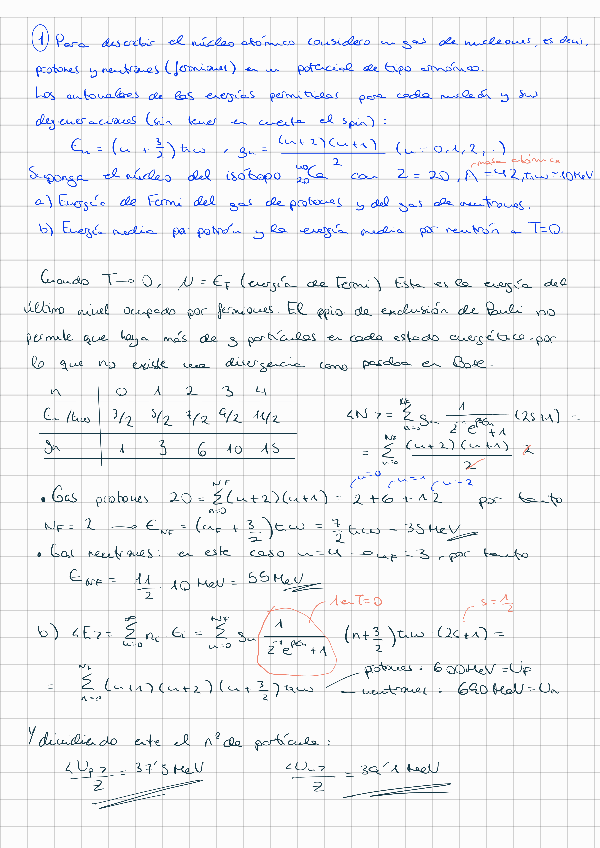 1) Para describir el núcleo atómico considero un gas de nucleones, es decir,
protones y neutrones (fermiones) en un potencial de tipo armónico.
Los autovalores de las energías permitidas para cada nucleón y sus
degeneraciones (sin tener en cuenta el spin):
En = (n + 3/2) ħω , gn = (n+2)(n+1)/2 (n = 0,1,2,..)
masa atómica
Suponga el núcleo del isótopo 40/20 Ca con Z = 20, A = 42, ħω = 10 MeV
a) Energía de Fermi del gas de protones y del gas de neutrones.
b) Energía media por protón y la energía media por neutrón a T=0.
Cuando T→0, μ = EF (energía de Fermi) Esta es la energía del
último nivel ocupado por fermiones. El ppio de exclusión de Pauli no
permite que haya más de g partículas en cada estado energético, por
lo que no existe una divergencia como pasaba en Bose.
n | 0 1 2 3 4
En/ħω | 3/2 5/2 7/2 9/2 11/2
gn | 1 3 6 10 15
<N> = Σ(n=0, NF) gn 1/(z⁻¹e^βEn + 1) (2s+1) =
= Σ(n=0, NF) (n+2)(n+1)/2 2
n=0 n=1 n=2
• Gas protones 20 = Σ(n=0, NF) (n+2)(n+1) = 2+6+12 por tanto
NF = 2 → ENF = (nF + 3/2) ħω = 7/2 ħω = 35 MeV
• Gas neutrones: en este caso nF = 3, por tanto
ENF = 11/2 · 10 MeV = 55 MeV
1 en T=0
s = 1/2
b) <E> = Σ(n=0, ∞) ni Ei = Σ(n=0, NF) gn 1/(z⁻¹e^βEn + 1) (n + 3/2) ħω (2s+1) =
= Σ(n=0, NF) (n+1)(n+2)(n + 3/2) ħω
protones: 600 MeV = UP
neutrones: 690 MeV = Un
Y dividiendo entre el nº de partículas:
<UP>/Z = 37'5 MeV <Un>/Z = 39'1 MeV